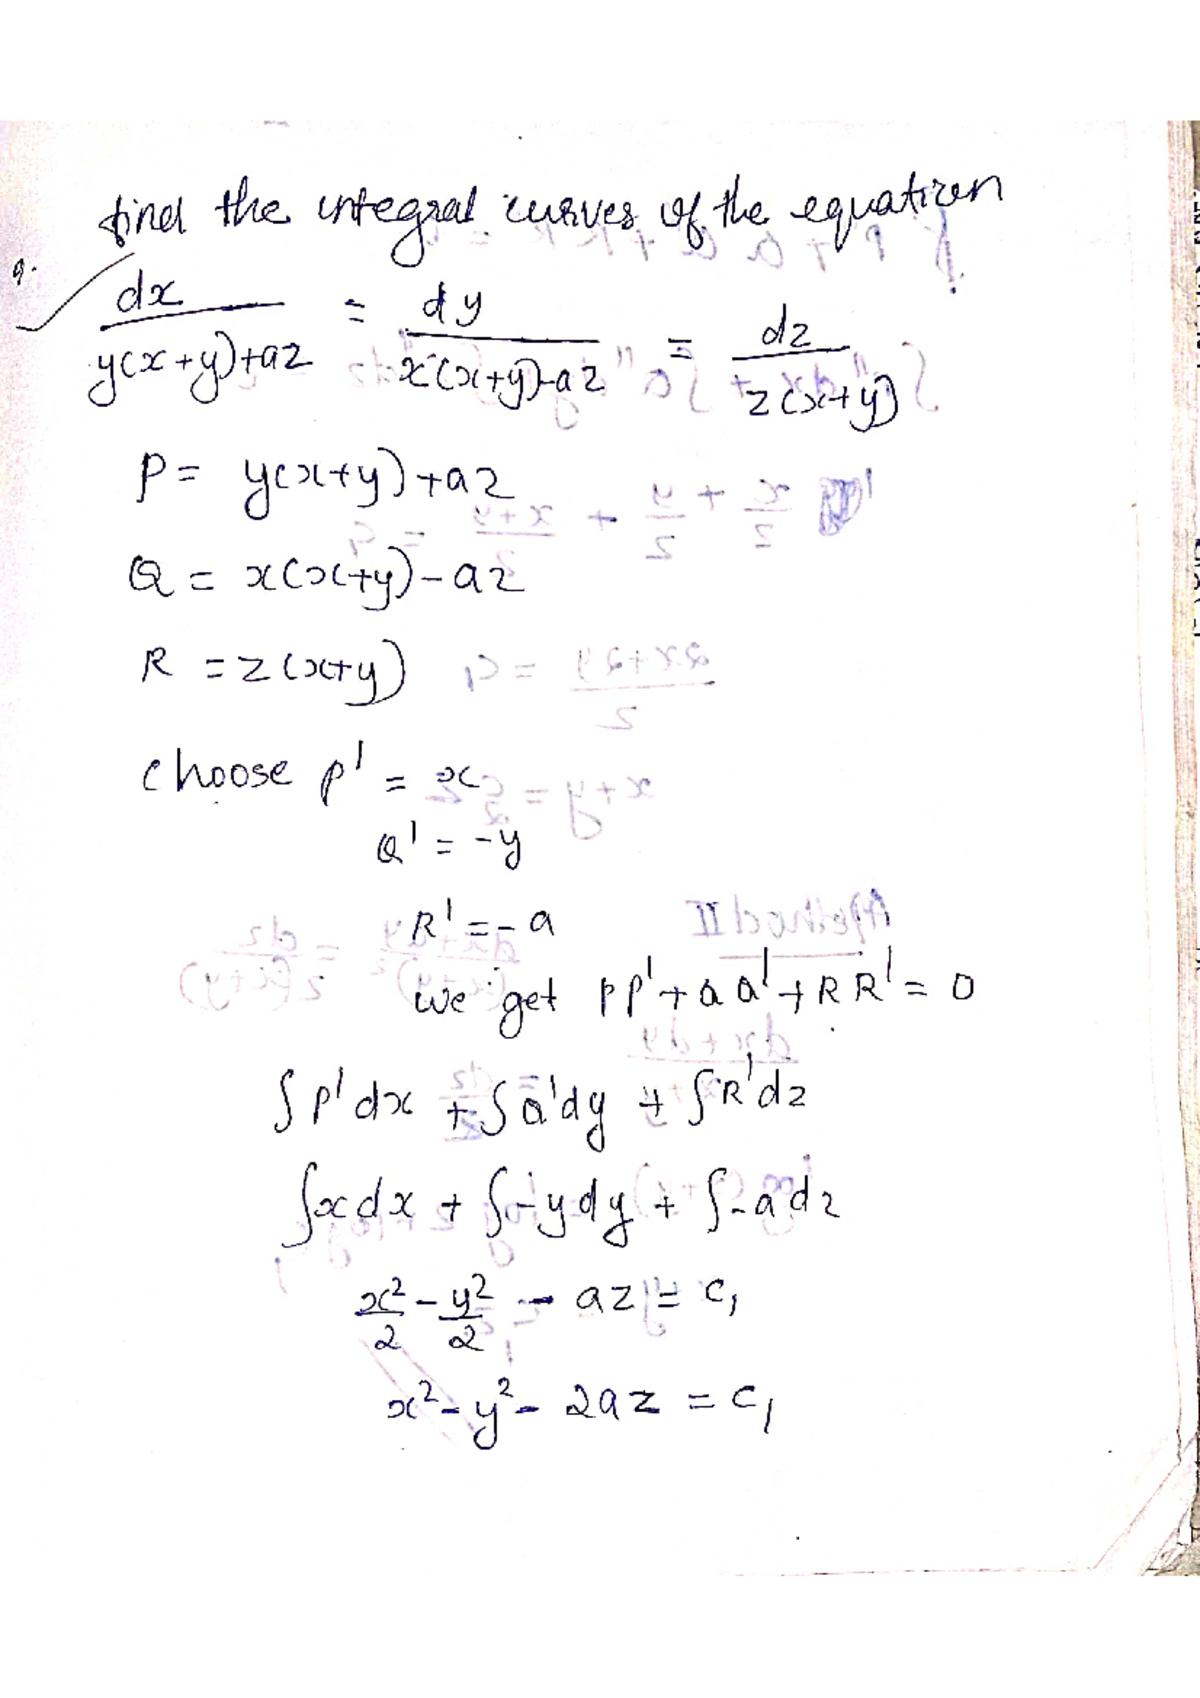 find the integral curves of the equation
9.
dx / y(x+y)+az = dy / x(x+y)-az = dz / z(x+y)
P = y(x+y)+az
Q = x(x+y)-az
R = z(x+y)
choose P' = x
Q' = -y
R' = -a
we get PP'+QQ'+RR' = 0
∫P'dx + ∫Q'dy + ∫R'dz
∫xdx + ∫-ydy + ∫-adz
x²/2 - y²/2 - az = c₁
x² - y² - 2az = c₁